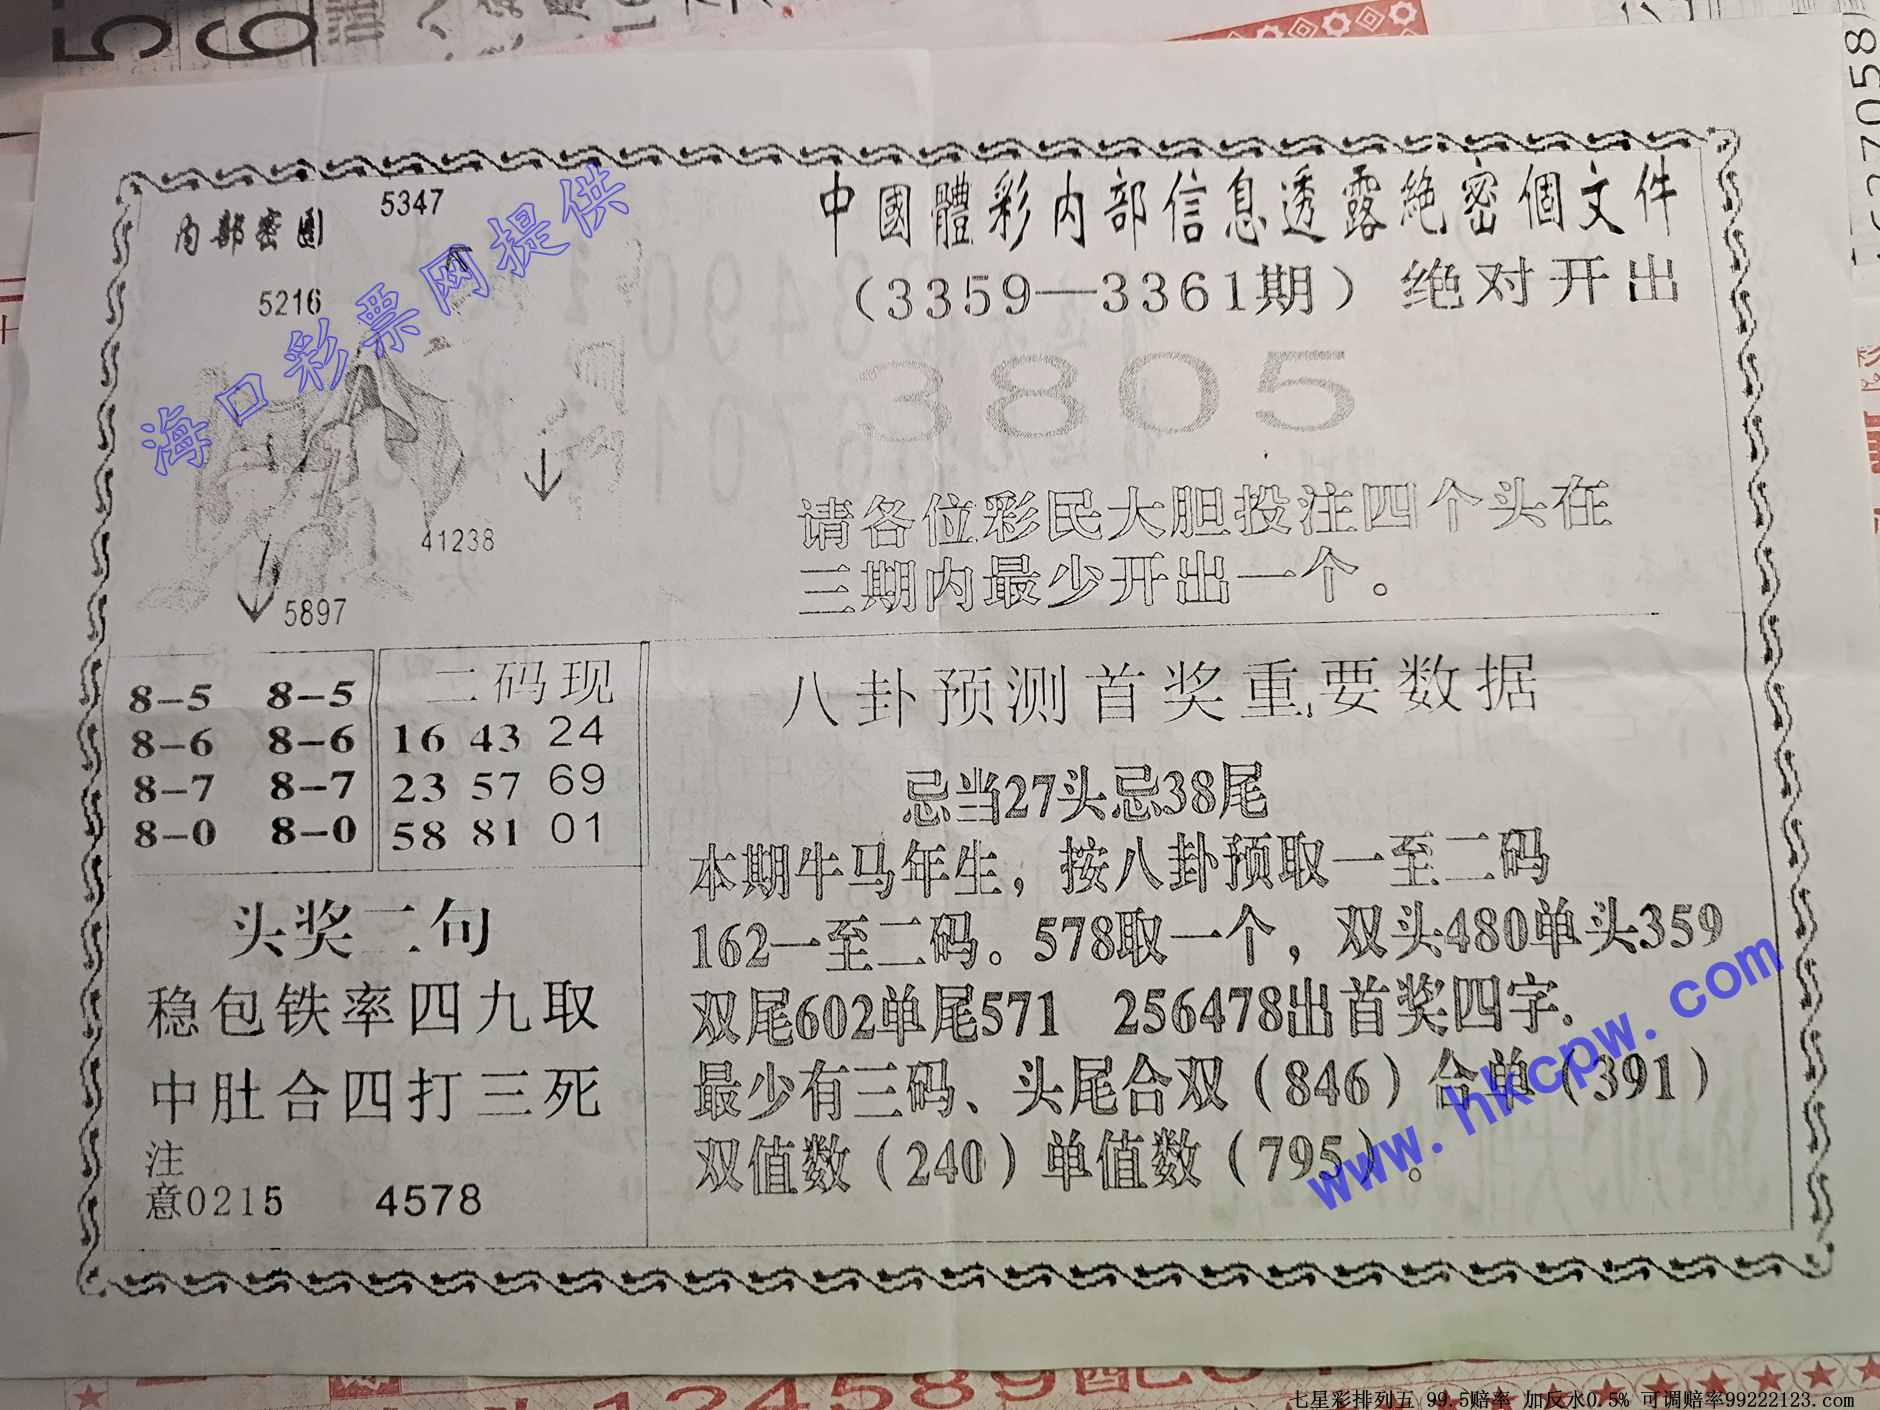 中國體彩内部信息透露絶密個文件
（3359—3361期）绝对开出
3805
请各位彩民大胆投注四个头在
三期内最少开出一个。
内部密图
5347
5216
41238
5897
海口彩票网提供
8-5 8-5
8-6 8-6
8-7 8-7
8-0 8-0
二码现
16 43 24
23 57 69
58 81 01
八卦预测首奖重要数据
忌当27头忌38尾
本期牛马年生，按八卦预取一至二码
162一至二码。578取一个，双头480单头359
双尾602单尾571 256478出首奖四字.
最少有三码、头尾合双（846）合单（391）
双值数（240）单值数（795）。
头奖二句
稳包铁率四九取
中肚合四打三死
注
意0215 4578
www.hkcpw.com
七星彩排列五 99.5赔率 加反水0.5% 可调赔率99222123.com